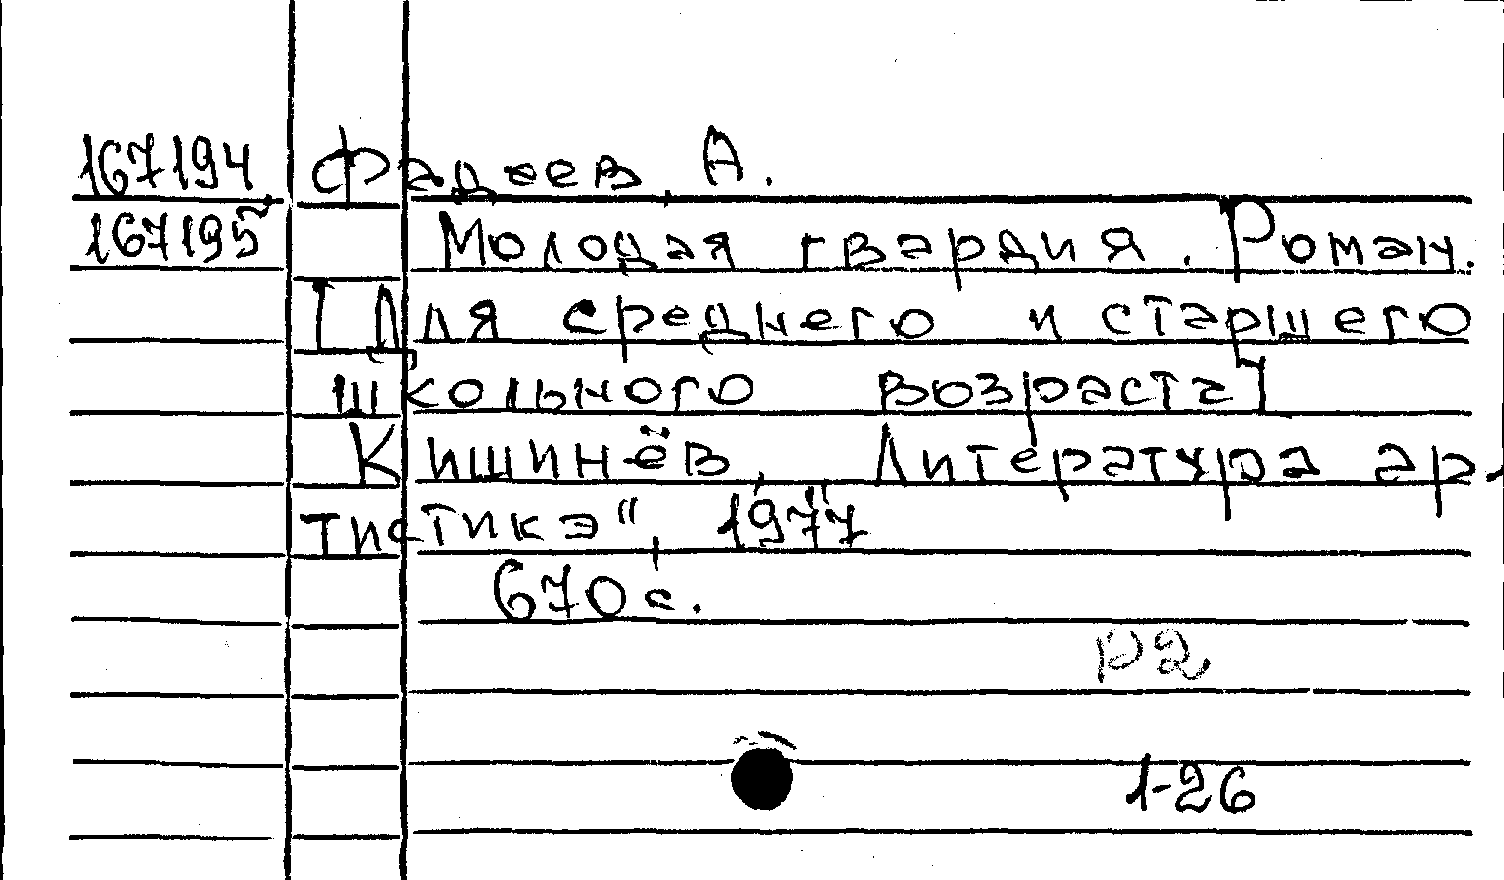 167194 Фадеев, А.
167195 Молодая гвардия. Роман.
[Для среднего и старшего
школьного возраста]
Кишинёв, Литература ар-
тистикэ", 1977
670 с.
р2
1-26